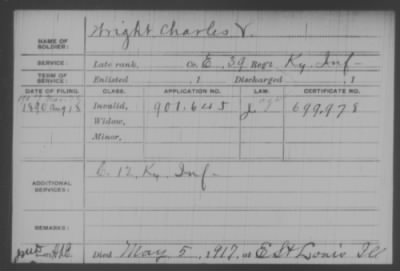 Wright Charles V.
NAME OF SOLDIER:
SERVICE: Late rank, Co. E, 39 Reg't Ky. Inf.
TERM OF SERVICE: Enlisted , 1 Discharged , 1
DATE OF FILING. CLASS. APPLICATION NO. LAW. CERTIFICATE NO.
1890 Aug 18 Invalid, 901.645 J. 699.978
Widow,
Minor,
ADDITIONAL SERVICES: C. 12, Ky. Inf.
REMARKS:
Died May 5, 1917, at E St Louis Ill